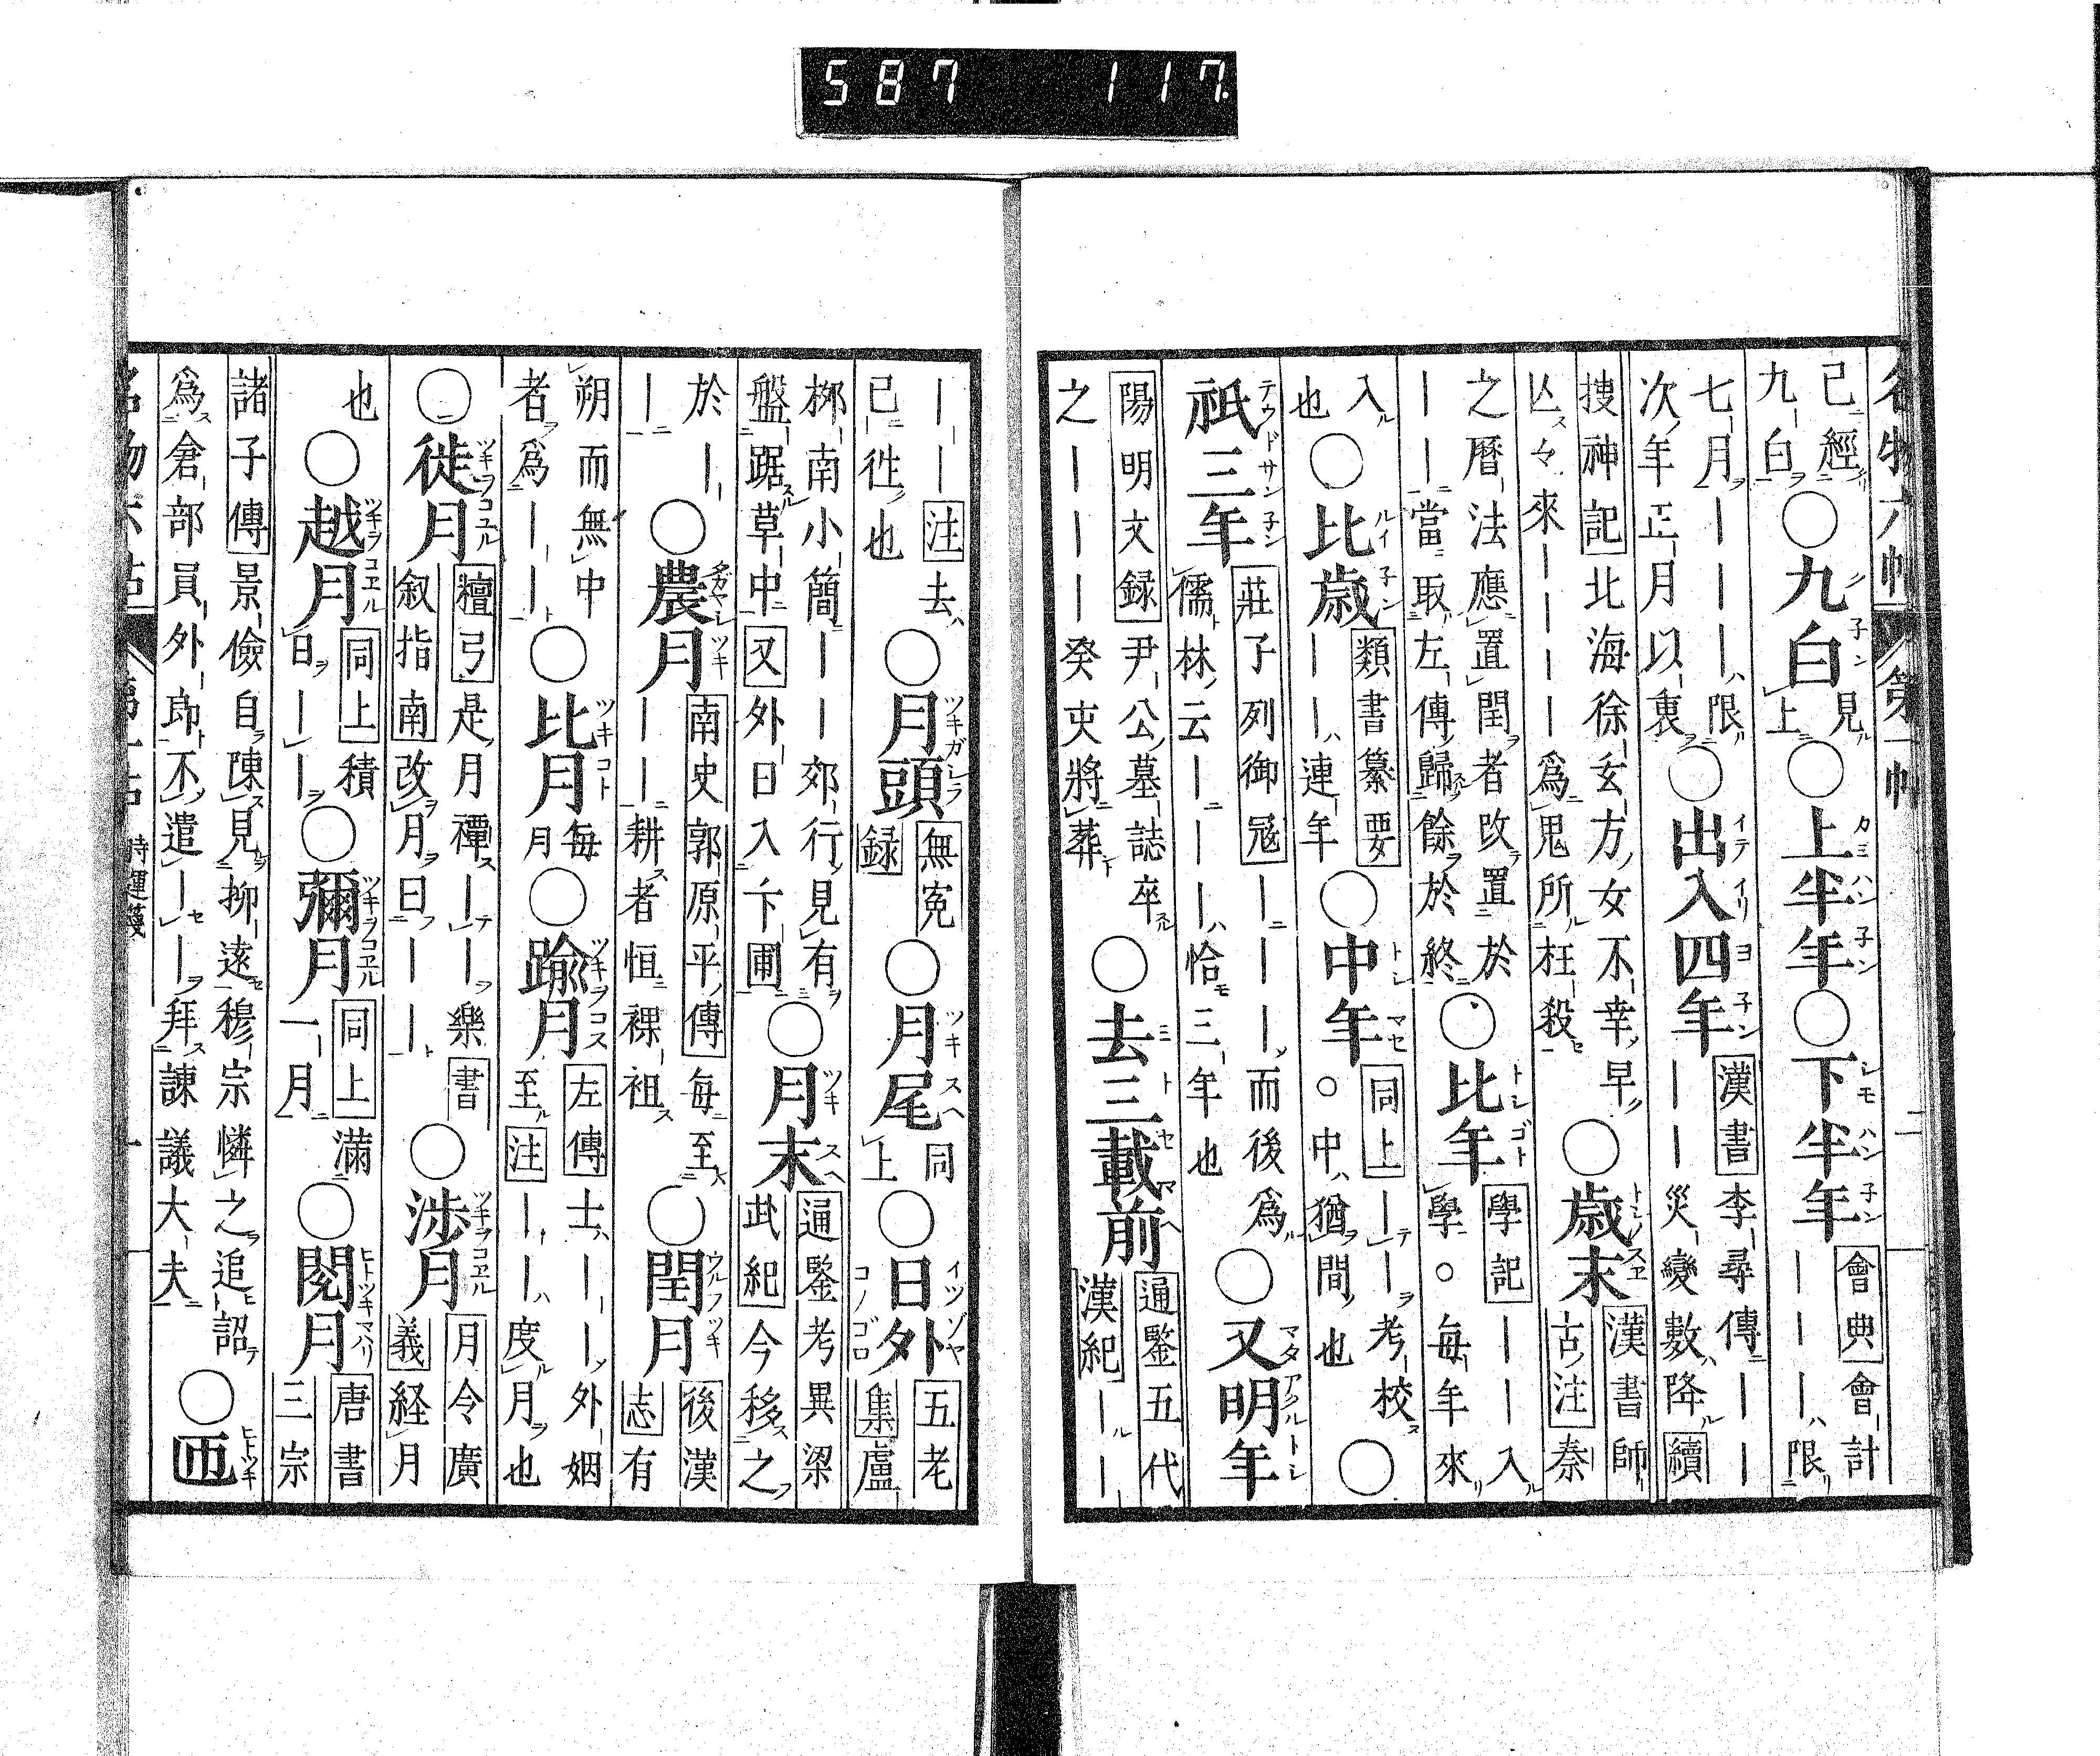 587 117.
名物六帖 第一帖 二
已經九白○九白見上○上半年○下半年會典會計——ー限
七月———限次年正月以衷○出入四年漢書李尋傳————災變數降續
捜神記北海徐玄方女不幸早亾々來————爲鬼所枉殺○歳末漢書師古注秦
之暦法應置閏者攺置於——當取左傳歸餘於終○比年學記——入學○每年來
入也○比歳類書纂要——連年○中年同上——考校○中猶間也○
祇三年莊子列御冦———而後爲儒林云———恰三年也○又明年
陽明文録尹公墓誌卒之———癸丈將葬○去三載前通鑒五代漢紀——
——注去已徃也○月頭無寃録○月尾同上○日外五老集盧
梛南小簡——郊行見有盤踞草中又外日入卞圃○月末通鑒考異梁武紀今移之
於——○農月南史郭原平傳每至——耕者恒裸袒○閏月後漢志有
朔而無中者爲——○比月每月○踰月左傳士——外姻至注——度月也
○徙月檀弓是月禫——樂書叙指南改月曰——○渉月月令廣義経月
也○越月同上積日——○彌月同上滿一月○閱月唐書三宗
諸子傳景儉自陳見抑遠穆宗憐之追詔爲倉部員外郎不遣——拜諫議大夫○匝
名物六帖 第一帖 時運箋